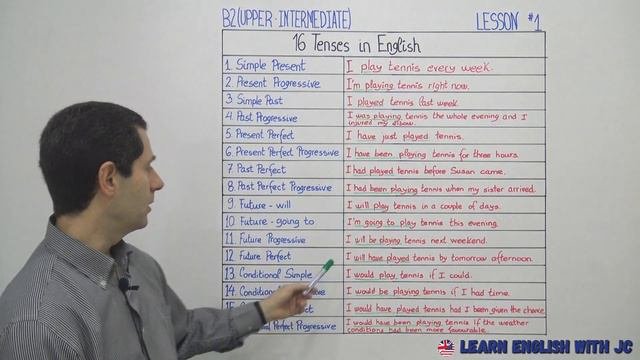 B2(UPPER-INTERMEDIATE) LESSON #1
16 Tenses in English
1. Simple Present I play tennis every week.
2. Present Progressive I'm playing tennis right now.
3. Simple Past I played tennis last week
4. Past Progressive I was playing tennis the whole evening and I
injured my elbow.
5. Present Perfect I have just played tennis.
6. Present Perfect Progressive I have been playing tennis for three hours.
7. Past Perfect I had played tennis before Susan came.
8. Past Perfect Progressive I had been playing tennis when my sister arrived.
9. Future - will I will play tennis in a couple of days.
10. Future - going to I'm going to play tennis this evening.
11. Future Progressive I will be playing tennis next weekend.
12. Future Perfect I will have played tennis by tomorrow afternoon.
13. Conditional Simple I would play tennis if I could.
14. I would be playing tennis if I had time.
15. I would have played tennis had I been given the chance
Perfect Progressive I would have been playing tennis if the weather
conditions had been more favourable.
LEARN ENGLISH WITH JC